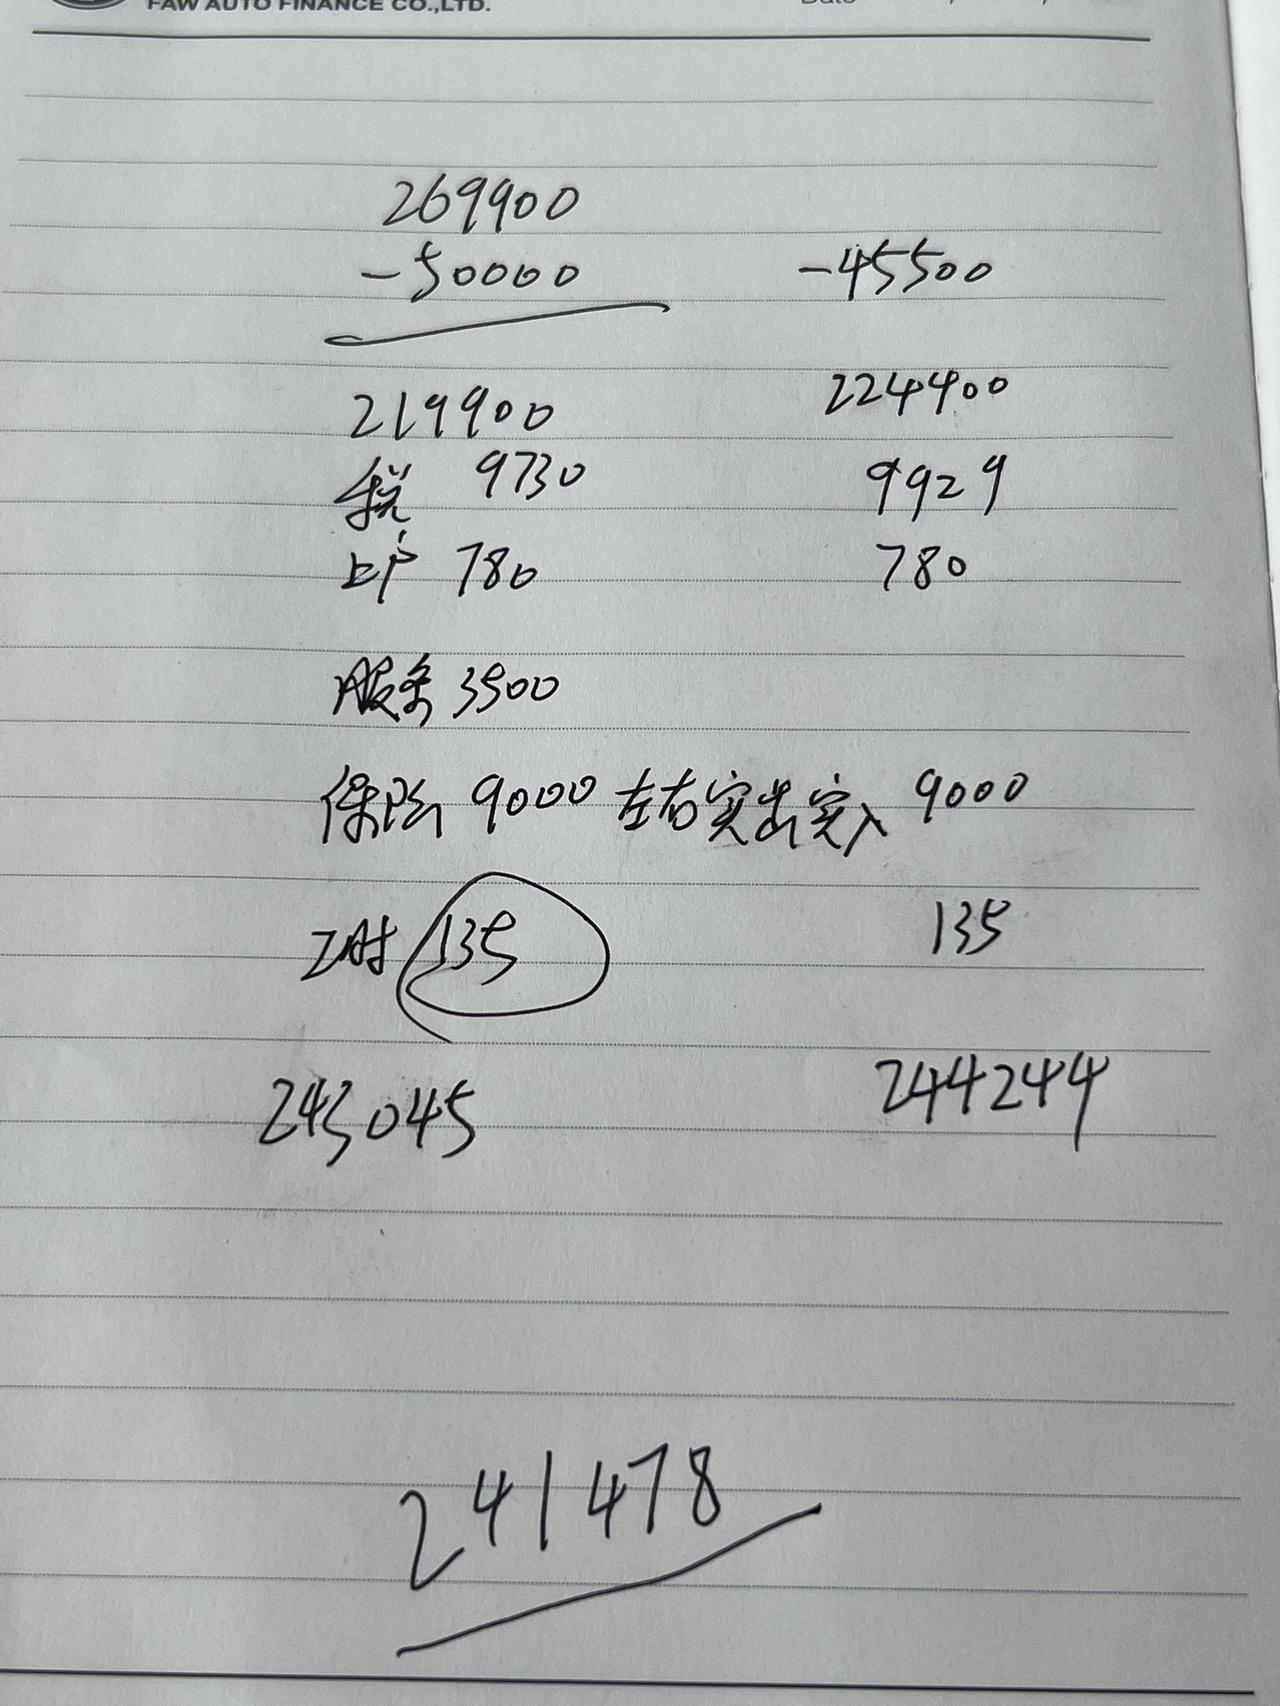 FAW AUTO FINANCE CO.,LTD.
Date
269900
-50000 -45500
219900 224400
税 9730 9929
上户 780 780
服务 3500
保险 9000 左右实出实入 9000
工时 135 135
243045 244244
241478